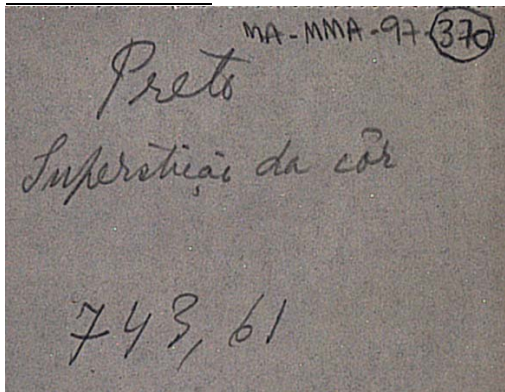 MA-MMA-97-370
Preto
Superstição da côr
743, 61